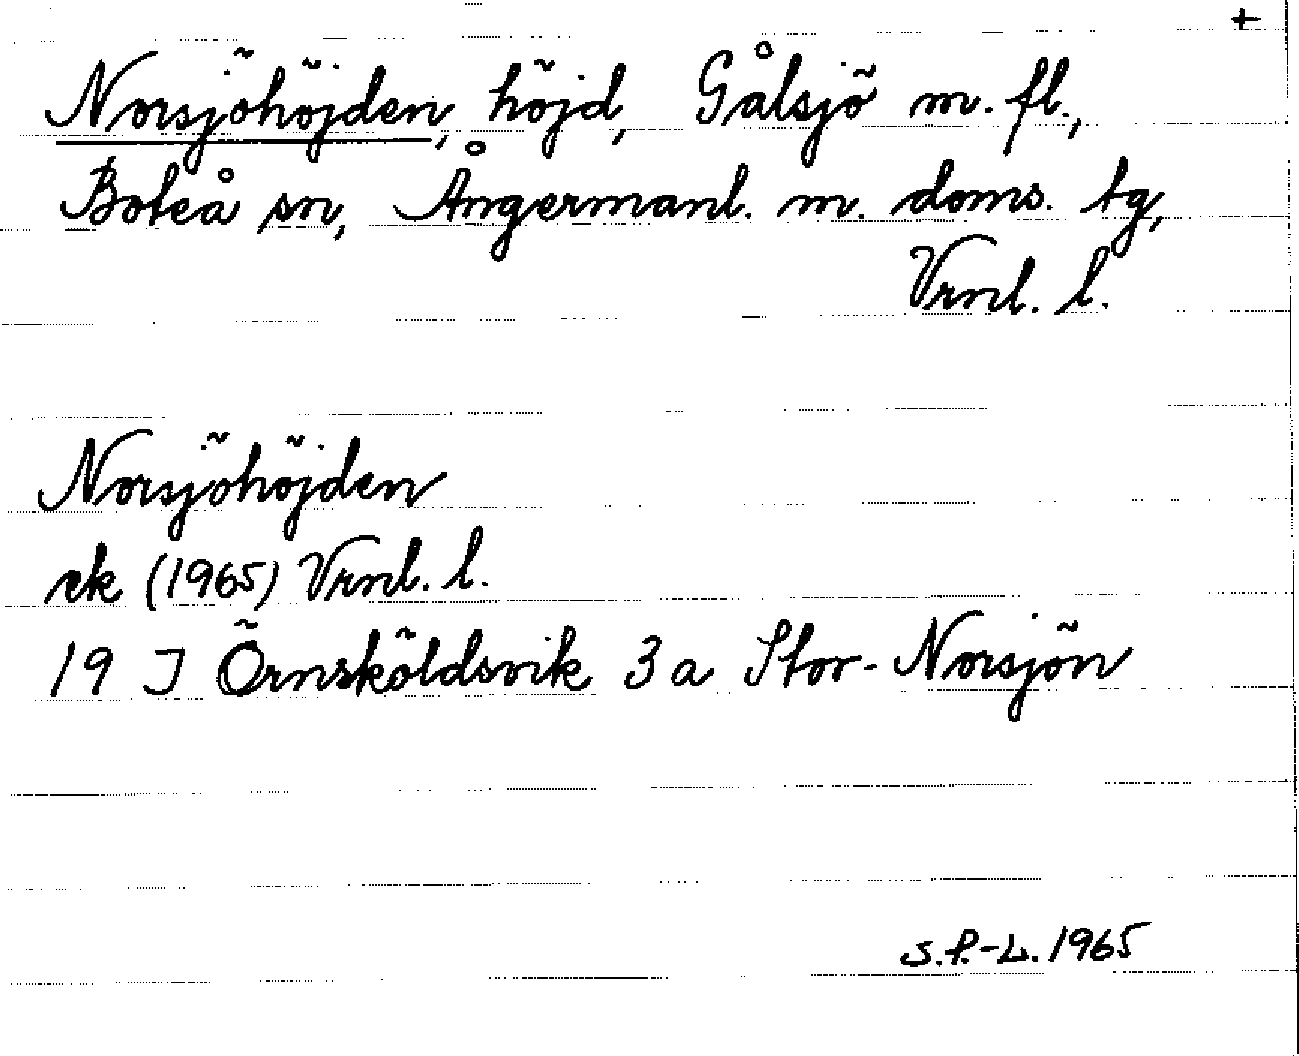 +
Norsjöhöjden, höjd, Gålsjö m. fl.,
Boteå sn, Ångermanl. m. doms. tg,
Vrnl. l.
Norsjöhöjden
ek (1965) Vrnl. l.
19 J Örnsköldsvik 3 a Stor-Norsjön
S.P.-L. 1965